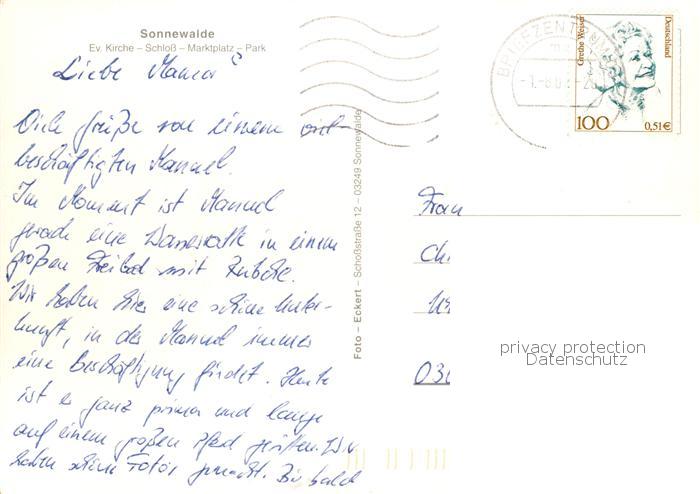 Sonnewalde
Ev. Kirche – Schloß – Marktplatz – Park
Liebe Mama!
Dich grüße von einem
beschäftigten Manuel.
Im Moment ist Manuel
gerade eine Wasserratte in einem
großen Freibad mit Rutsche.
Wir haben hier eine schöne Unter-
kunft, in der Manuel immer
eine Beschäftigung findet. Heute
ist er ganz prima und lange
auf einem großen Pferd geritten. Wir
haben schöne Fotos gemacht. Bis bald
Foto – Eckert – Schoßstraße 12 – 03249 Sonnewalde
BRIEFZENTRUM
Grethe Weiser
Deutschland
100
0,51€
Frau
privacy protection
Datenschutz